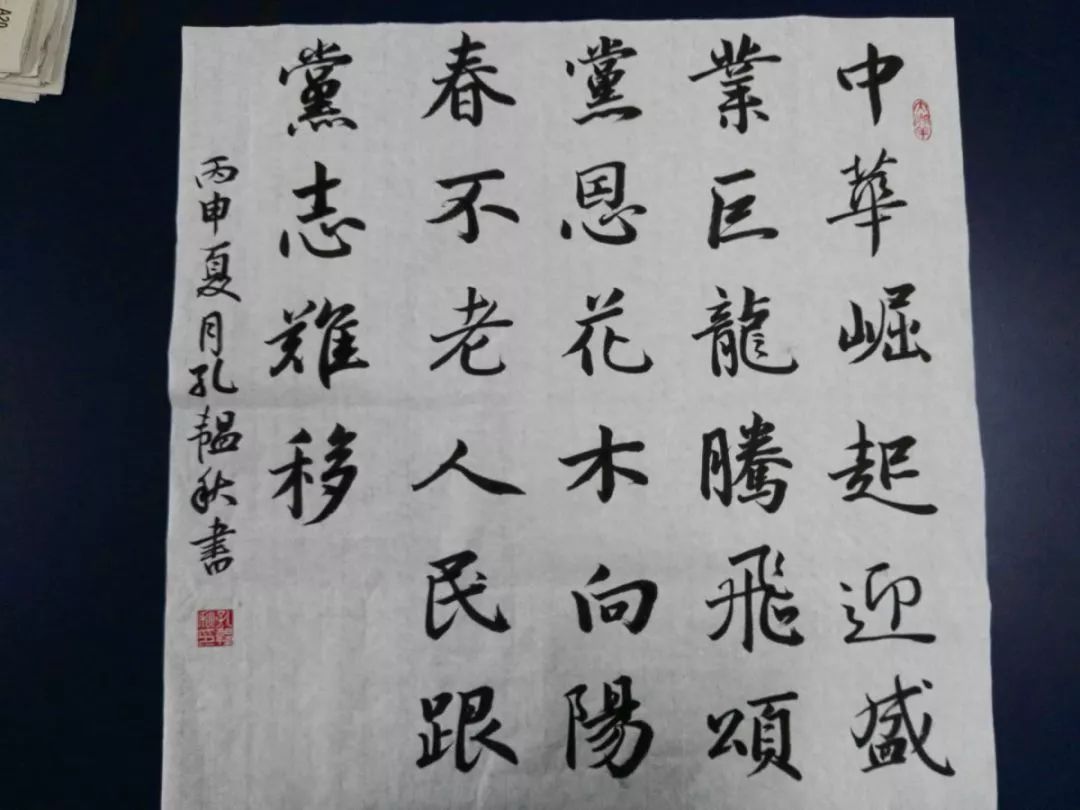 中華崛起迎盛
業巨龍騰飛頌
黨恩花木向陽
春不老人民跟
黨志難移
丙申夏月孔韞秋書
A20